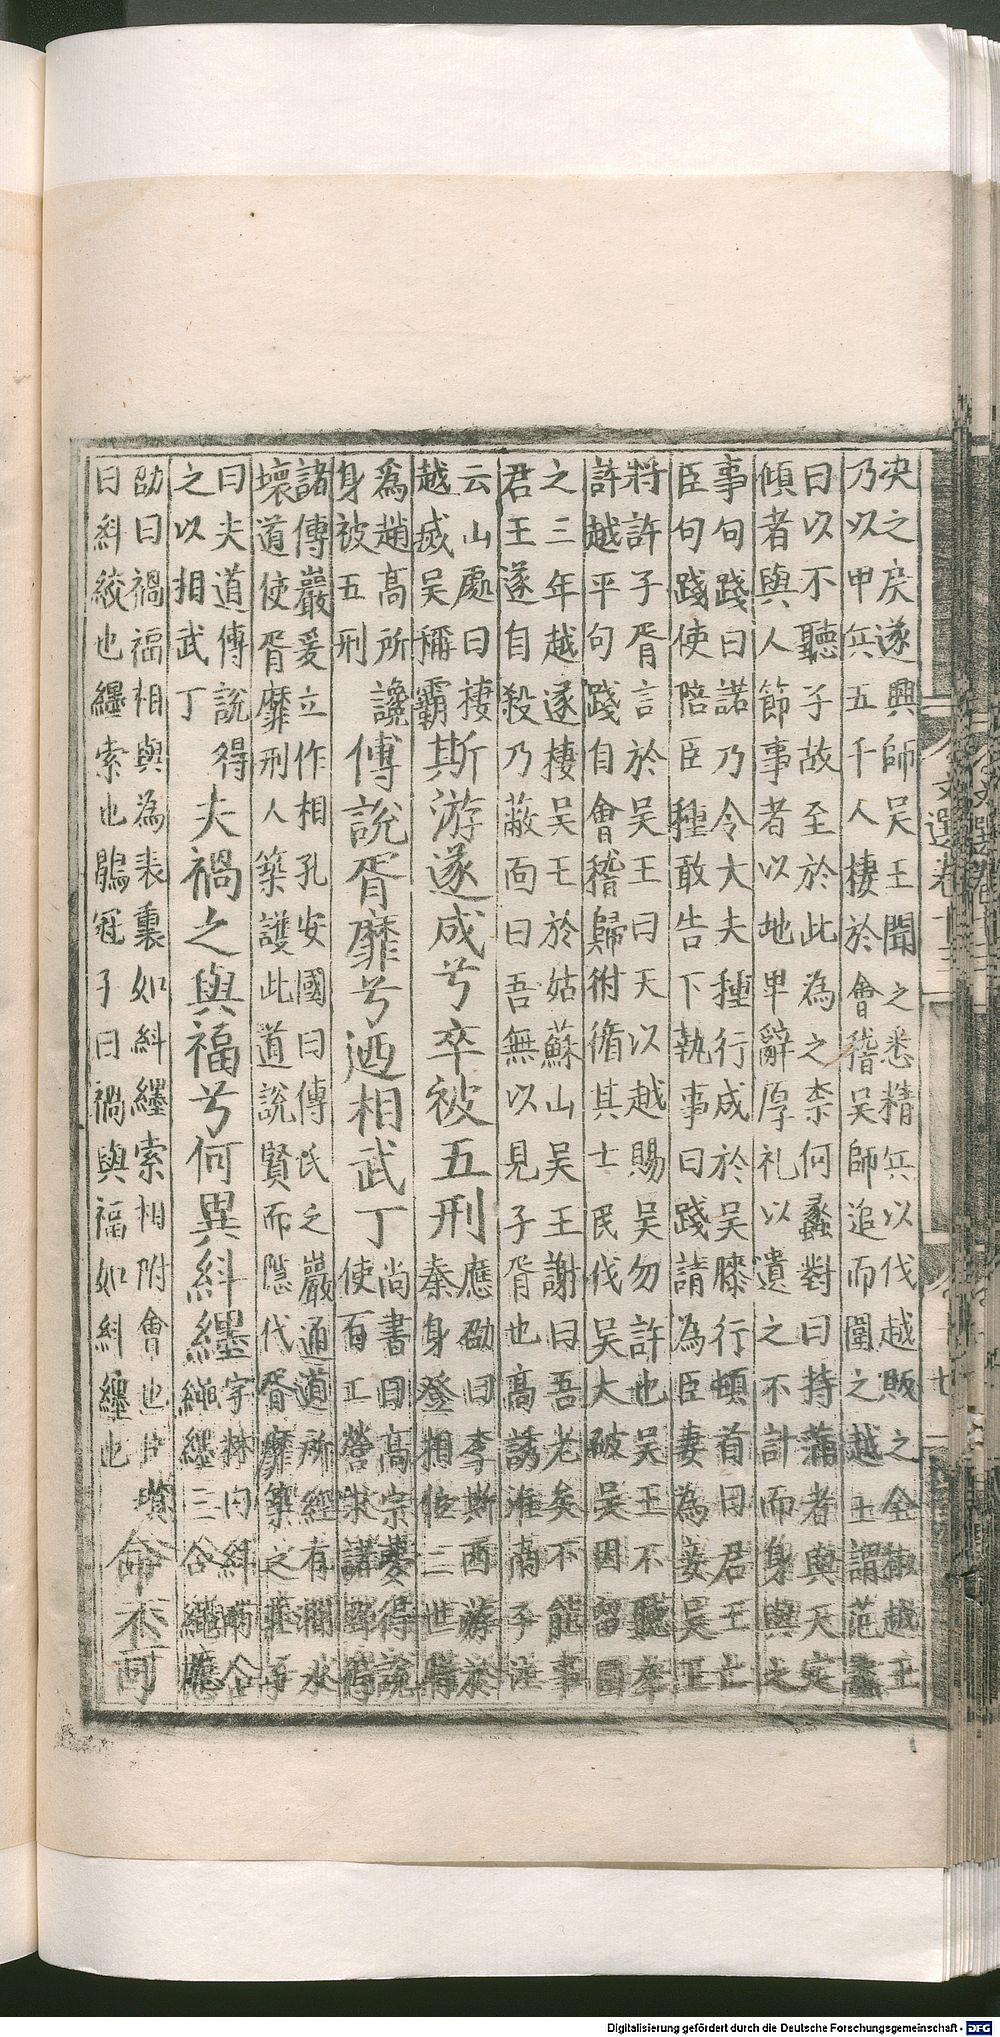 决之矣遂興師吳王聞之悉精兵以伐越敗之金椒越王
乃以甲兵五千人棲於會稽吳師追而圍之越王謂范蠡
曰以不聽子故至於此為之柰何蠡對曰持蒲者與天定
傾者與人節事者以地卑辭厚礼以遺之不計而身與之
事句踐曰諾乃令大夫種行成於吳膝行頓首曰君王亡
臣句踐使陪臣種敢告下執事曰踐請為臣妻為妾吳王
將許子胥言於吳王曰天以越賜吳勿許也吳王不聽卒
許越平句踐自會稽歸拊循其士民伐吳大破吳因留圍
之三年越遂棲吳王於姑蘇山吳王謝曰吾老矣不能事
君王遂自殺乃蔽面曰吾無以見子胥也高誘淮南子注
云山處曰棲
越滅吳稱霸
斯游遂成兮卒被五刑
應劭曰李斯西游於
秦身登相位二世時
為趙高所讒
身被五刑
傅說胥靡兮迺相武丁
尚書曰高宗夢得說
使百工營求諸野得
諸傅巖爰立作相孔安國曰傅氏之巖通道所經有澗水
壞道使胥靡刑人築護此道說賢而隱代胥靡築之莊子
曰夫道傅說得
之以相武丁
夫禍之與福兮何異糾纆
字林曰糾兩合
繩纆三合繩應
劭曰禍福相與為表裏如糾纆索相附會也臣瓚
曰糾絞也纆索也鶡冠子曰禍與福如糾纆也
命不可
文選卷十三
七
Digitalisierung gefördert durch die Deutsche Forschungsgemeinschaft - DFG